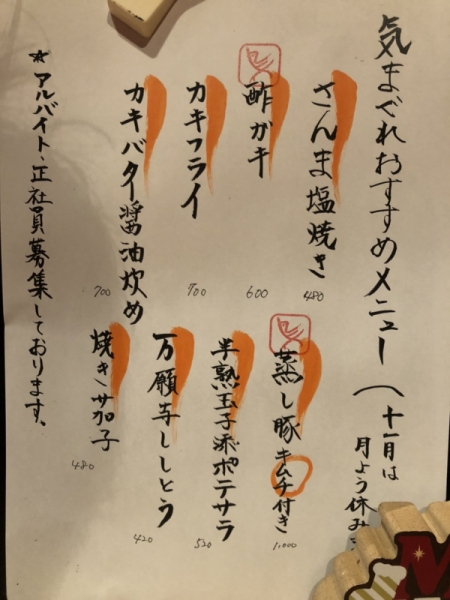 気まぐれおすすめメニュー
(十一月は
月よう休み
さんま塩焼き
480
酢ガキ
600
カキフライ
700
カキバター醤油炒め
700
蒸し豚キムチ付き
1,000
半熟玉子添ポテサラ
520
万願寺ししとう
420
焼き茄子
480
★アルバイト、正社員募集しております。